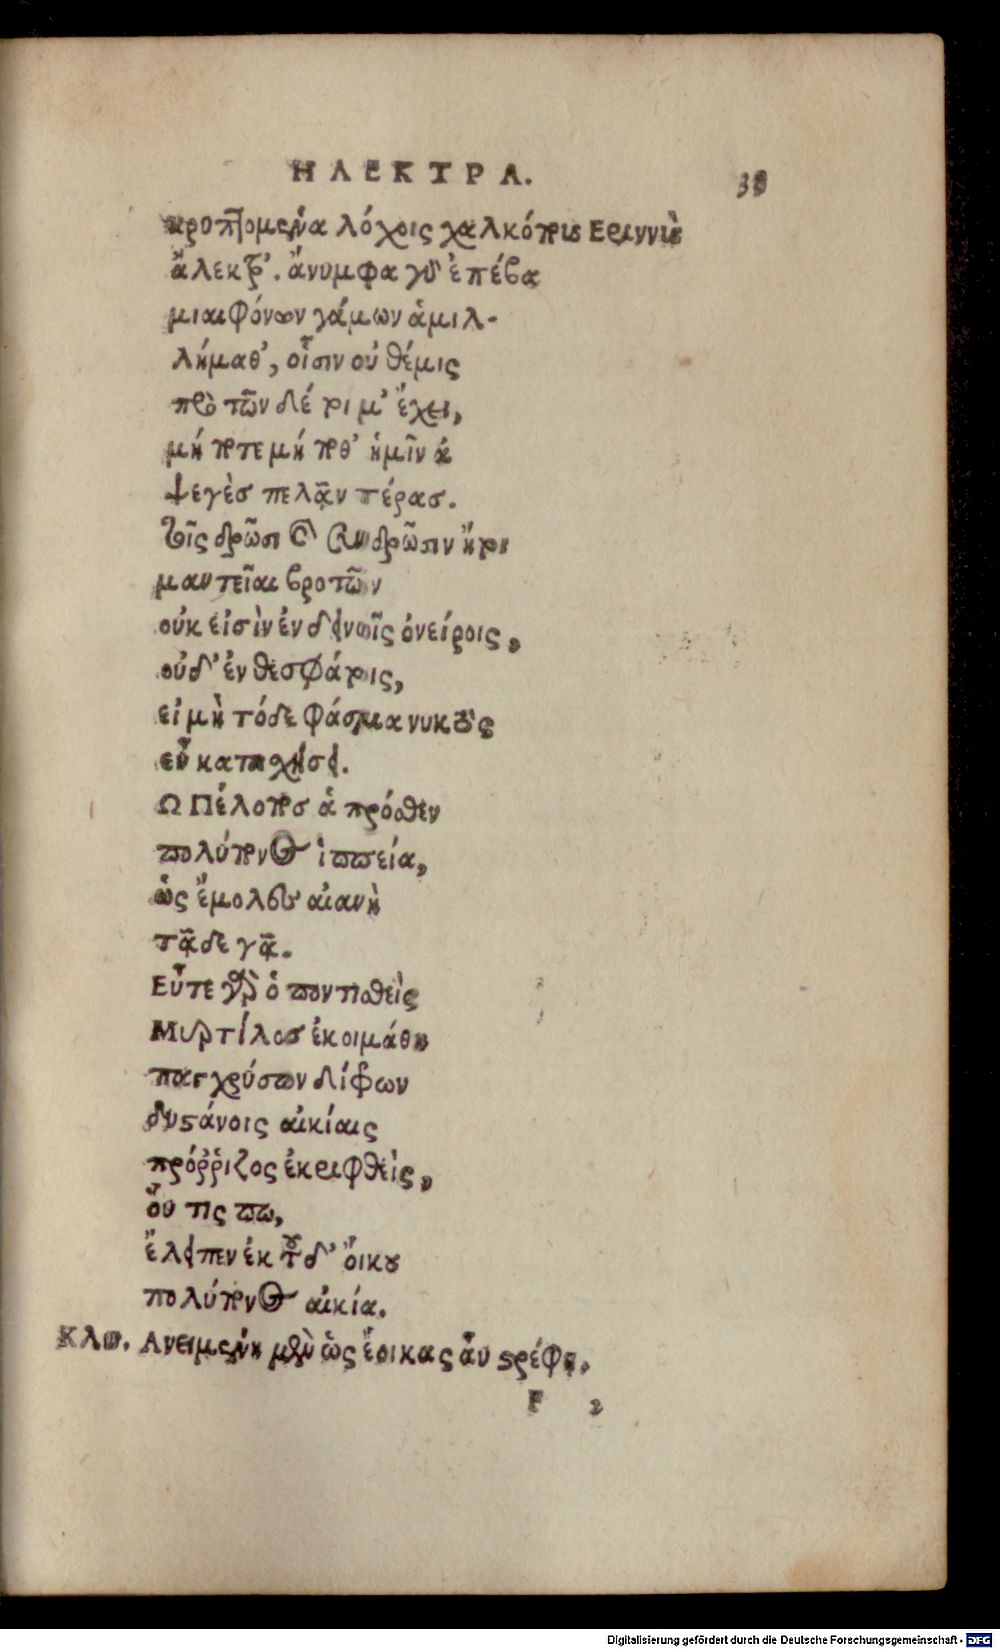 ΗΛΕΚΤΡΑ. 38
κρυπτομένα λόχοις χαλκόπους Εριννὺς
ἄλεκτρ'. ἄνυμφα γὸ ἐπέβα
μιαιφόνων γάμων ἁμιλ-
λήμαθ', οἷσιν οὐ θέμις
πρὸ τῶν δέ τοι μ' ἔχει,
μή ποτε μή ποθ' ἡμῖν ἀ
ψεγὲσ πελᾷν τέρασ.
τοῖς δρῶσι καὶ συνδρῶσιν ἤτοι
μαντεῖαι βροτῶν
οὐκ εἰσὶν ἐν δεινοῖς ὀνείροις,
οὐδ' ἐν θεσφάτοις,
εἰ μὴ τόδε φάσμα νυκτὸς
εὖ κατασχήσει.
Ω Πέλοποσ ἁ πρόσθεν
πολύπονος ἱππεία,
ὡς ἔμολες αἰανὴ
τᾷδε γᾷ.
Εὖτε γὰρ ὁ ποντισθεὶς
Μυρτίλοσ ἐκοιμάθη
παγχρύσων δίφρων
δυστάνοις αἰκίαις
πρόῤῥιζος ἐκριφθεὶς,
οὔ τις πω,
ἔλειπεν ἐκ τοῦδ' οἴκου
πολύπονος αἰκία.
Κλυ. Ανειμένη μὲν ὡς ἔοικας ἂν στρέφῃ.
F 2
Digitalisierung gefördert durch die Deutsche Forschungsgemeinschaft - DFG